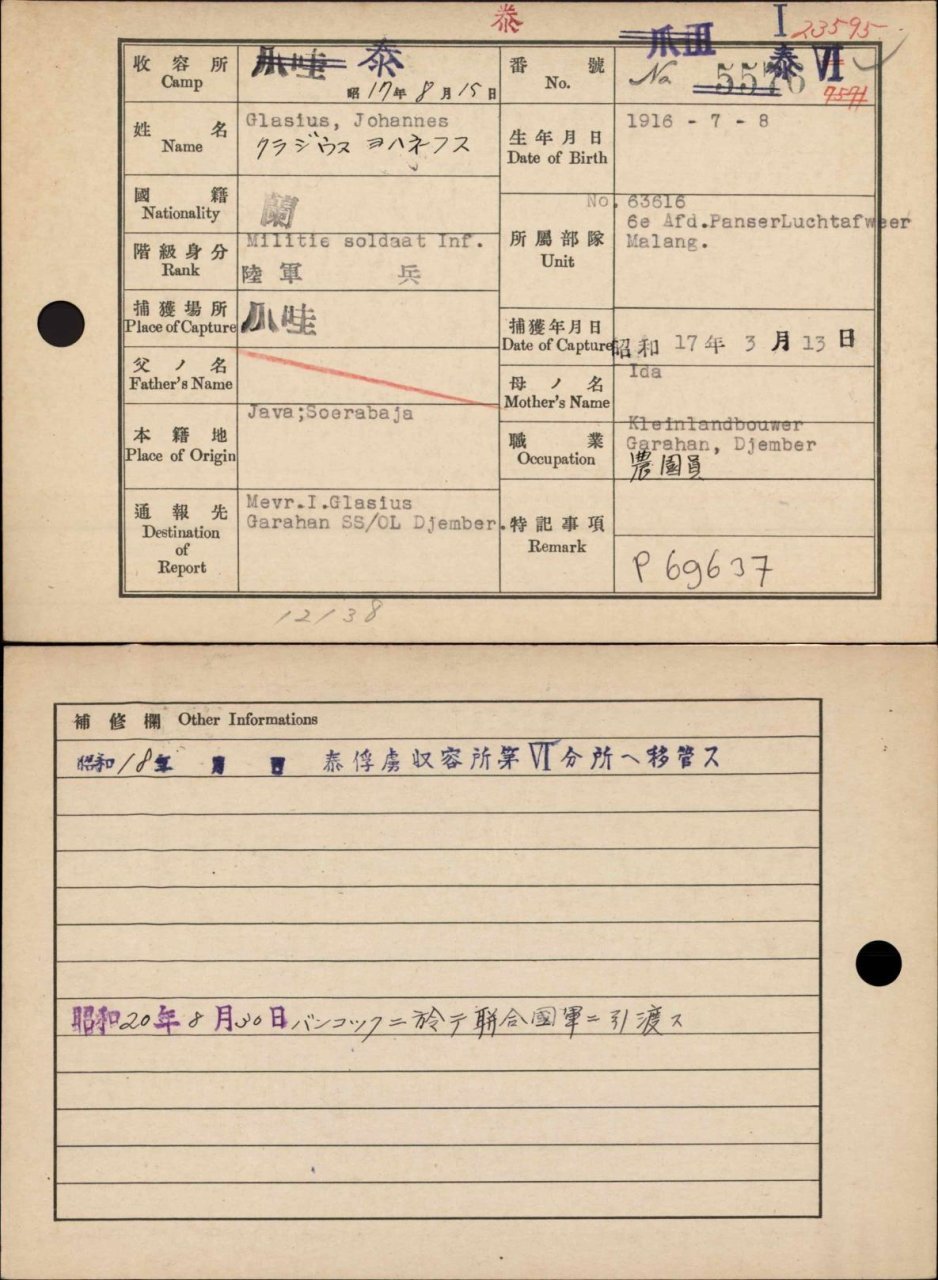 泰
I 23595
爪 III
收容所 Camp
爪哇 泰
昭 17年 8月 15日
番號 No.
No 5576 泰 VI
9591
姓名 Name
Glasius, Johannes
クラジウス ヨハネフス
生年月日 Date of Birth
1916 - 7 - 8
國籍 Nationality
蘭
所屬部隊 Unit
No. 63616
6e Afd.PanserLuchtafweer
Malang.
階級身分 Rank
Militie soldaat Inf.
陸軍 兵
捕獲場所 Place of Capture
爪哇
捕獲年月日 Date of Capture
昭和 17年 3月 13日
父ノ名 Father's Name
母ノ名 Mother's Name
Ida
本籍地 Place of Origin
Java;Soerabaja
職業 Occupation
Kleinlandbouwer
Garahan, Djember
農園員
通報先 Destination of Report
Mevr.I.Glasius
Garahan SS/OL Djember.
特記事項 Remark
P 69637
12138
補修欄 Other Informations
昭和18年 月 日 泰俘虜収容所第VI分所ヘ移管ス
昭和20年8月30日バンコックニ於テ聯合國軍ニ引渡ス